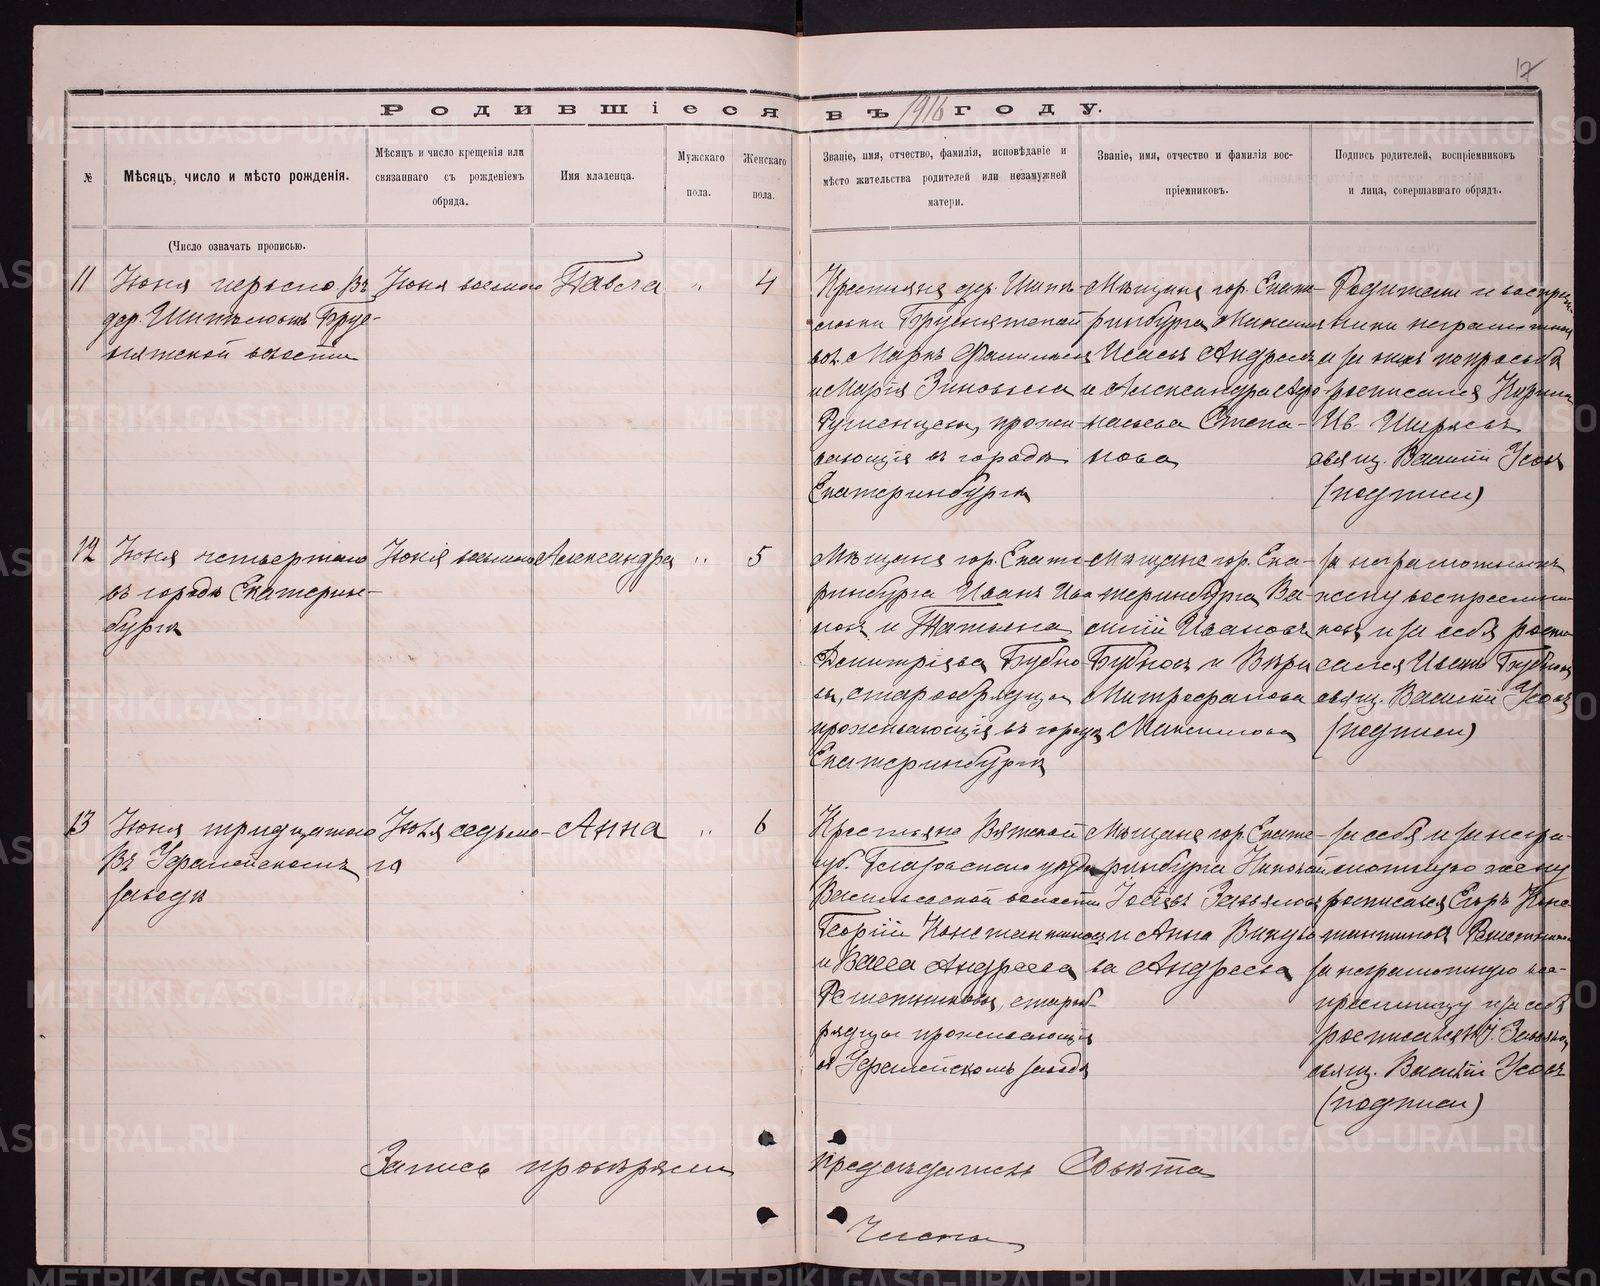 17
Родившіеся въ 1916 году.
№
Мѣсяцъ, число и мѣсто рожденія.
Мѣсяцъ и число крещенія или
связаннаго съ рожденіемъ
обряда.
Имя младенца.
Мужскаго
пола.
Женскаго
пола.
Званіе, имя, отчество, фамилія, исповѣданіе и
мѣсто жительства родителей или незамужней
матери.
Званіе, имя, отчество и фамилія вос-
пріемниковъ.
Подпись родителей, воспріемниковъ
и лица, совершавшаго обрядъ.
(Число означать прописью.
11
Іюня перваго въ
дер.
волости
Іюня восьмого
Павла
"
4
Крестьяне дер.
вол. Маркъ
и Марія Зиновьева
Румянцевы, прожи-
вающія въ городѣ
Екатеринбургѣ
Мѣщане гор. Екате-
ринбурга
Исаевъ Андреевъ
и Александра Афо-
насьева Степа-
нова
Родители и воспрі-
и за нихъ по просьбѣ
росписался
Ив. Ширяевъ
свящ. Василій Усовъ
(подписи)
12
Іюня четвертаго
въ городѣ Екатерин-
бургѣ
Іюня восьмого
Александра
"
5
Мѣщане гор. Екате-
ринбурга Иванъ Ива-
новъ и Татьяна
Димитріева Бубно-
вы, старообрядцы
проживающія въ городѣ
Екатеринбургѣ
Мѣщане гор. Ека-
теринбурга Ва-
силій Ивановъ
Бубновъ и Вѣра
Митрофанова
за неграмотныхъ
жену
и за себя роспи-
сался Иванъ Бубновъ
свящ. Василій Усовъ
(подписи)
13
Іюня тридцатаго
въ Уфалейскомъ
заводѣ
Іюля седьмо-
го
Анна
"
6
Крестьяне Вятской
губ. Глазовскаго уѣзда
волости
Георгій Константиновъ
и Васса Андреева
Решетниковы, старооб-
рядцы проживающія
въ Уфалейскомъ заводѣ
Мѣщане гор. Екате-
ринбурга Николай
Завьяловъ
и Анна Викуло-
ва Андреева
За себя и за негра-
мотную жену
росписался Егоръ Конс-
тантиновъ Решетниковъ
за неграмотную вос-
пріемницу и за себя
росписался
свящ. Василій Усовъ
(подписи)
Запись провѣряли
Предсѣдатель Совѣта
Члены